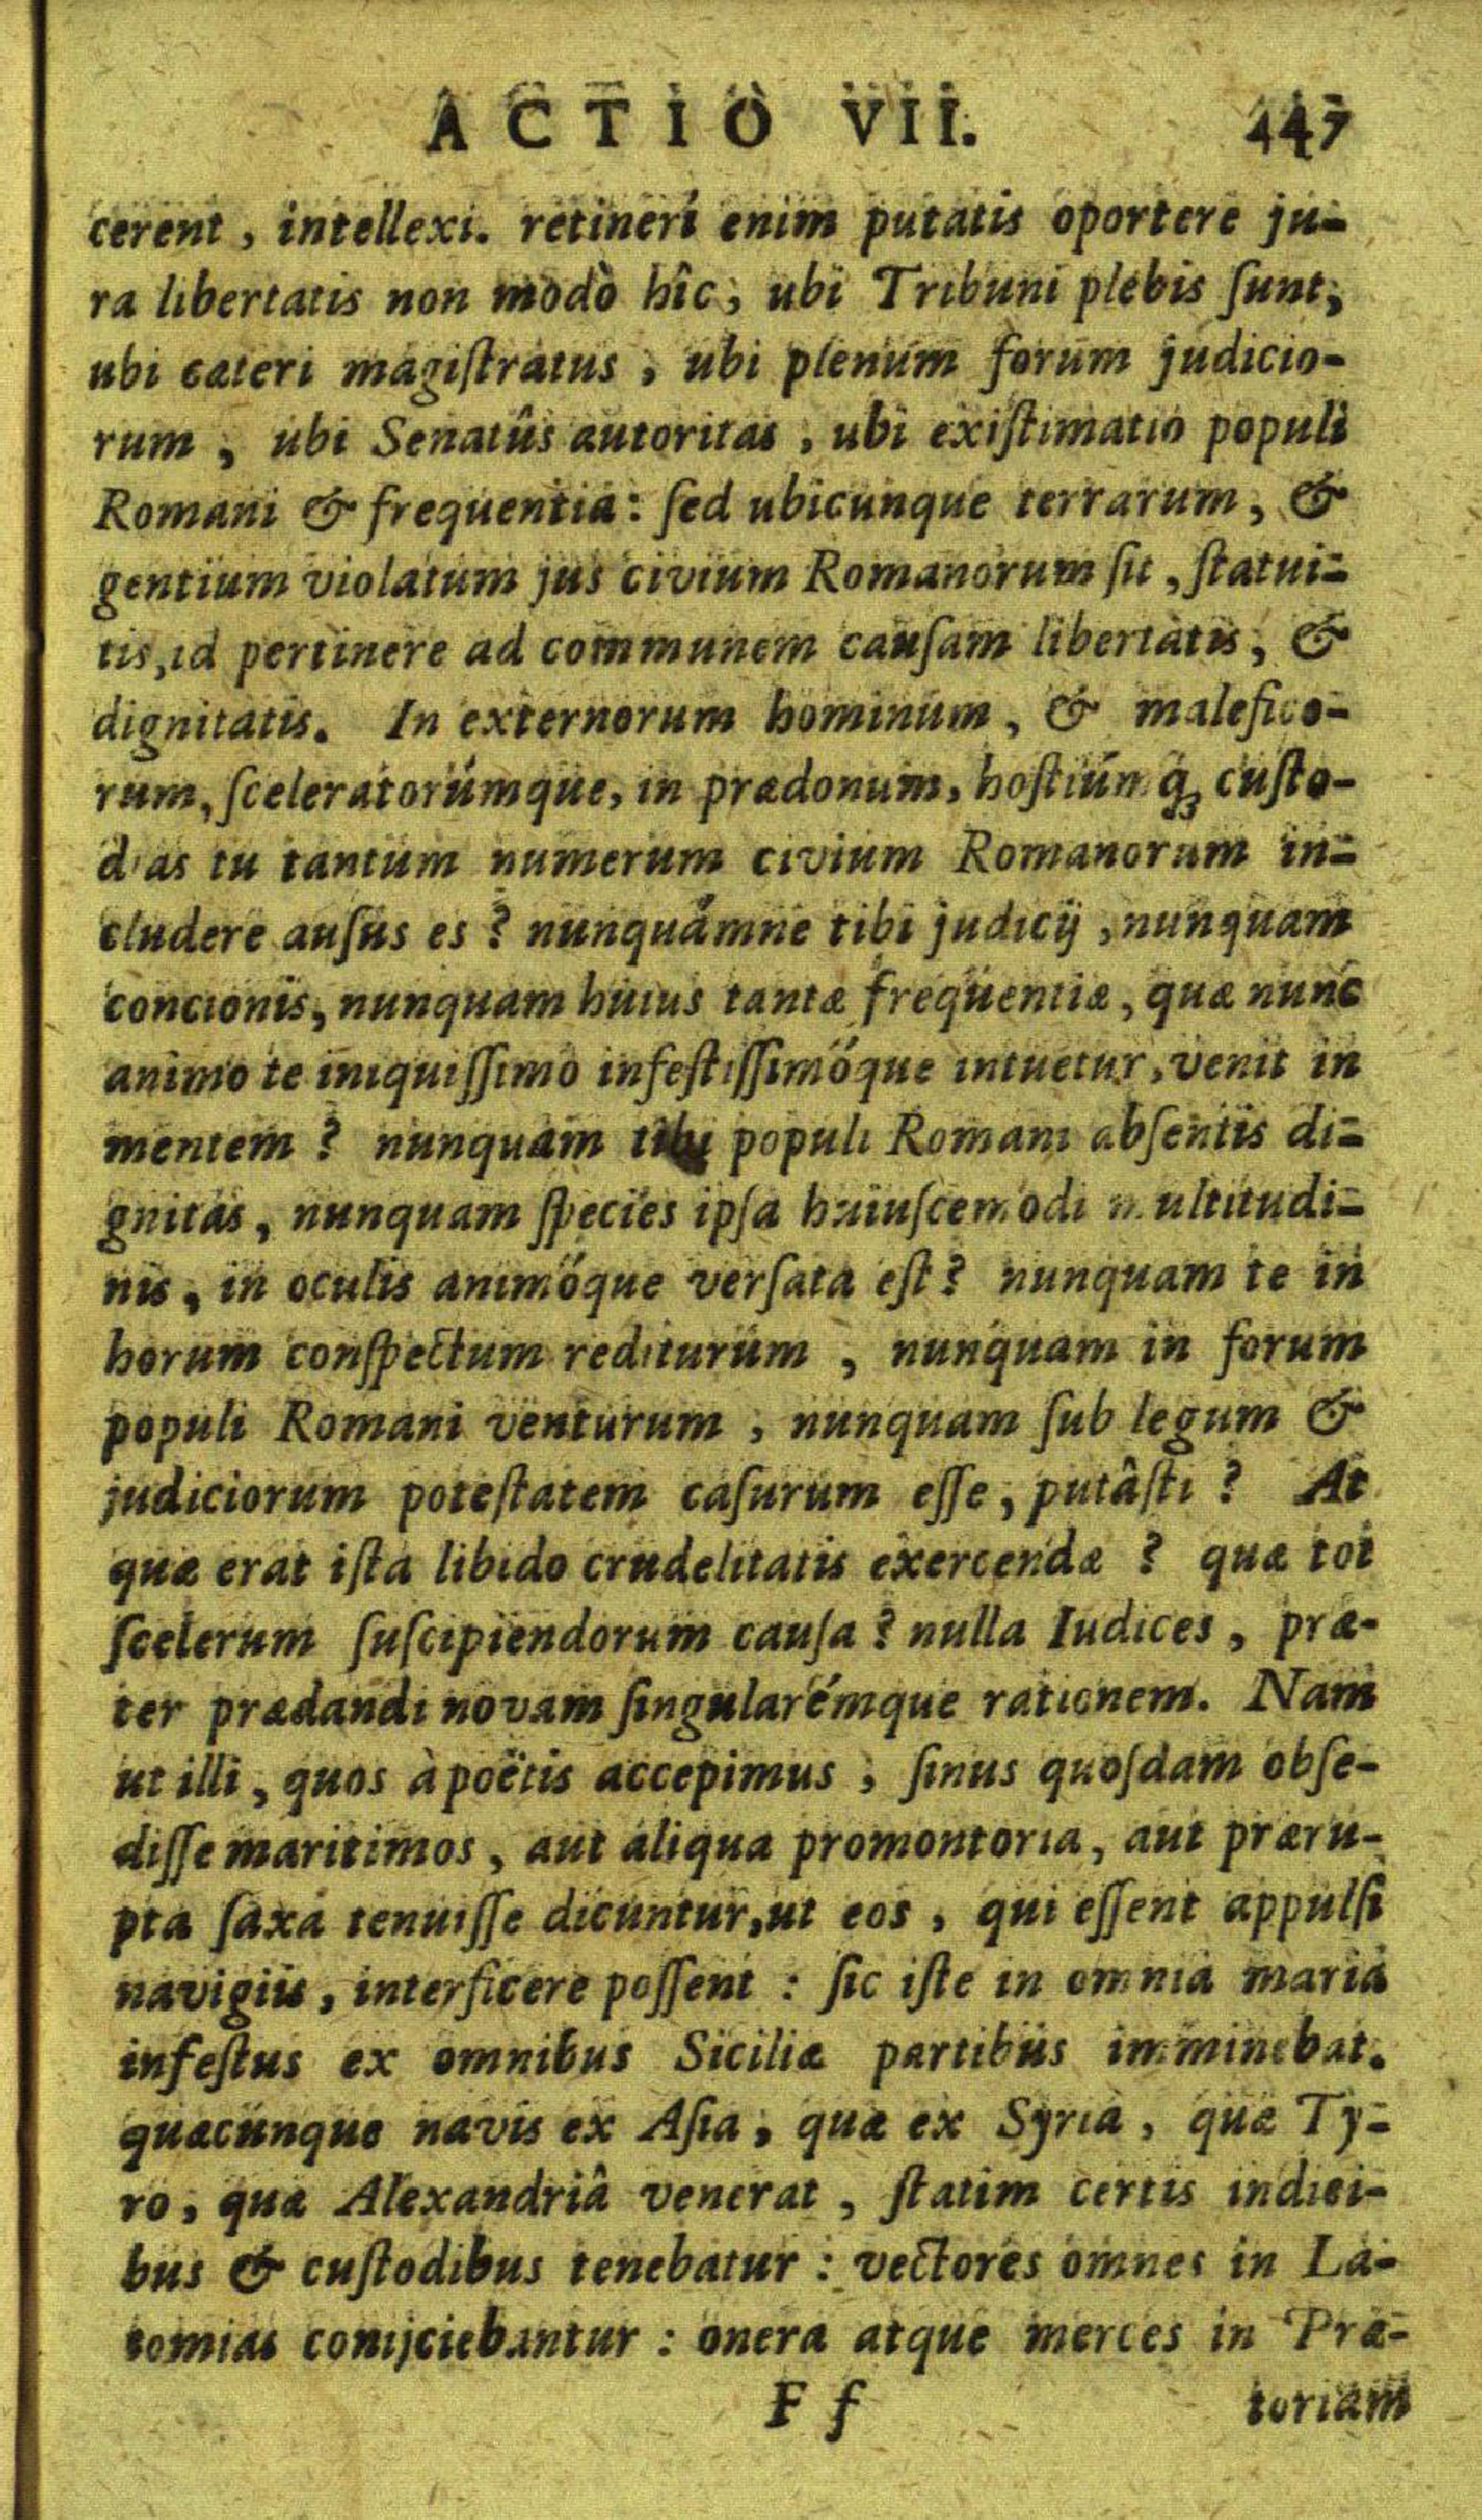 ACTIO VII. 447
cerent, intellexi. retineri enim putatis oportere ju-
ra libertatis non modò hîc, ubi Tribuni plebis ſunt,
ubi cæteri magiſtratus, ubi plenum forum judicio-
rum, ubi Senatûs autoritas, ubi exiſtimatio populi
Romani & frequentia: ſed ubicunque terrarum, &
gentium violatum jus civium Romanorum ſit, ſtatui-
tis, id pertinere ad communem cauſam libertatis, &
dignitatis. In externorum hominum, & malefico-
rum, ſceleratorúmque, in prædonum, hoſtiúmq; cuſto-
dias tu tantum numerum civium Romanorum in-
cludere auſus es? nunquámne tibi judicij, nunquam
concionis, nunquam huius tantæ frequentiæ, quæ nunc
animo te iniquiſſimo infeſtiſſimóque intuetur, venit in
mentem? nunquam tibi populi Romani abſentis di-
gnitas, nunquam ſpecies ipſa huiuſcemodi multitudi-
nis, in oculis animóque verſata eſt? nunquam te in
horum conſpectum rediturum, nunquam in forum
populi Romani venturum, nunquam ſub legum &
judiciorum poteſtatem caſurum eſſe, putâſti? At
quæ erat iſta libido crudelitatis exercendæ? quæ tot
ſcelerum ſuſcipiendorum cauſa? nulla Iudices, præ-
ter prædandi novam ſingularémque rationem. Nam
ut illi, quos à poëtis accepimus, ſinus quoſdam obſe-
diſſe maritimos, aut aliqua promontoria, aut præru-
pta ſaxa tenuiſſe dicuntur, ut eos, qui eſſent appulſi
navigiis, interficere poſſent: ſic iſte in omnia maria
infeſtus ex omnibus Siciliæ partibus imminebat.
quæcunque navis ex Aſia, quæ ex Syria, quæ Ty-
ro, quæ Alexandriâ venerat, ſtatim certis indici-
bus & cuſtodibus tenebatur: vectores omnes in La-
tomias conijciebantur: onera atque merces in Præ-
F f toriam